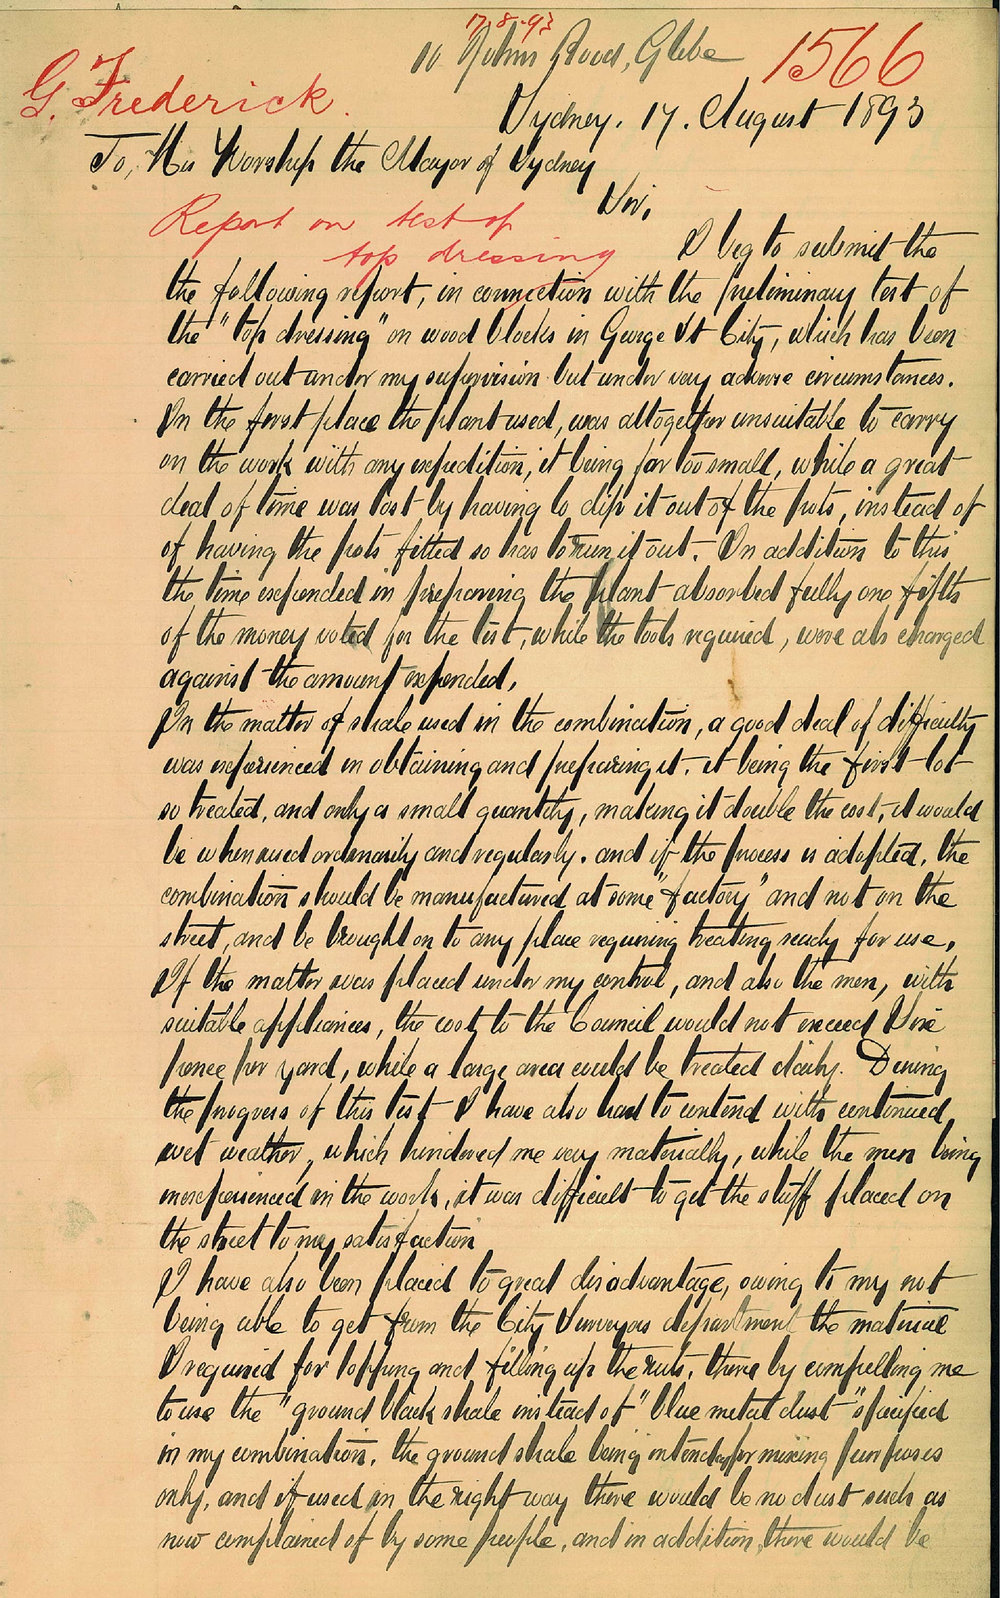 17.8.93
10 Johns Road, Glebe
1566
G. Frederick.
Sydney. 17. August 1893
To, His Worship the Mayor of Sydney
Sir,
Report on test of
top dressing
I beg to submit the
the following report, in connection with the preliminary test of
the "top dressing" on wood blocks in George St City, which has been
carried out under my supervision but under very adverse circumstances.
In the first place the plant used, was altogether unsuitable to carry
on the work with any expedition, it being far too small, while a great
deal of time was lost by having to dip it out of the pots, instead of
of having the pots fitted so has to run it out. In addition to this
the time expended in preparing the plant absorbed fully one fifth
of the money voted for the test, while the tools required, were als charged
against the amount expended.
In the matter of shale used in the combination, a good deal of difficulty
was experienced in obtaining and preparing it. it being the first lot
so treated, and only a small quantity, making it double the cost, it would
be when used ordinarily and regularly. and if the process is adopted, the
combination should be manufactured at some "factory" and not on the
street, and be brought on to any place requiring treating ready for use.
If the matter was placed under my control, and also the men, with
suitable appliances, the cost to the Council would not exceed Six
pence per yard, while a large area could be treated daily. During
the progress of this test I have also had to contend with continued
wet weather, which hindered me very materially, while the men being
inexperienced in the work, it was difficult to get the stuff placed on
the street to my satisfaction
I have also been placed to great disadvantage, owing to my not
being able to get from the City Surveyors department the material
I required for topping and filling up the ruts, there by compelling me
to use the "ground black shale instead of "blue metal dust" specified
in my combination. the ground shale being intended for mixing purposes
only, and if used in the right way there would be no dust such as
now complained of by some people, and in addition, there would be